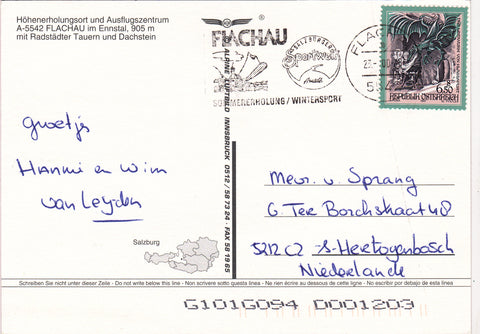 Höhenerholungsort und Ausflugszentrum
A-5542 FLACHAU im Ennstal, 905 m
mit Radstädter Tauern und Dachstein
FLACHAU
SALZBURGER
Sportwelt
Amadé
SOMMERERHOLUNG / WINTERSPORT
FLACHAU
6.50
REPUBLIK ÖSTERREICH
ALPINE LUFTBILD INNSBRUCK 0512 / 58 73 24 FAX 58 19 65
Groetjes
Hannie en Wim
van Leyden
Mevr. v. Sprang
G. Ter Borchstraat 48
5212 CZ s-Hertogenbosch
Niederlande
Salzburg
Schreiben Sie nicht unter dieser Zeile - Do not write below this line - Non scrivere sotto questa linea - Ne rien écrire au dessous de cette ligne - No escribir por debajo de esta linea
G101G094 D0D1203